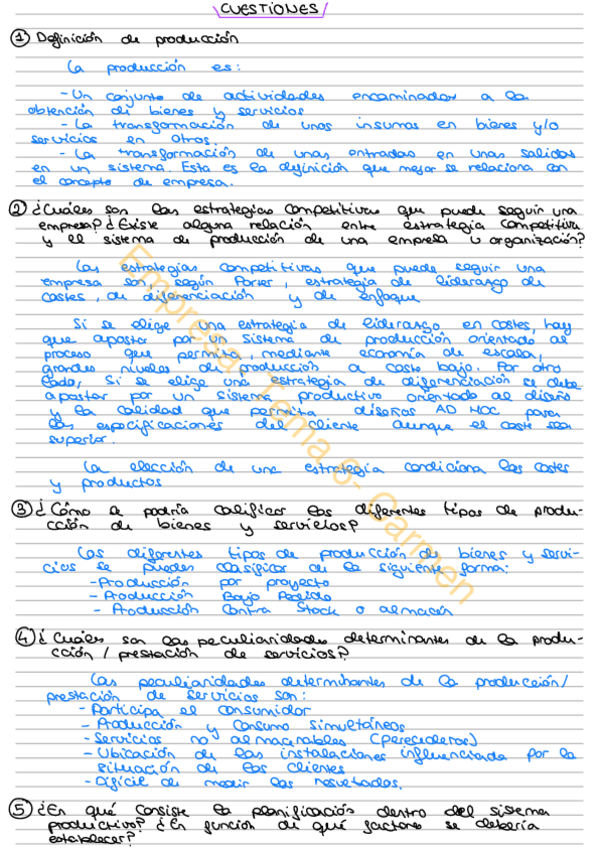 CUESTIONES
① Definición de producción
La producción es:
- Un conjunto de actividades encaminadas a la
obtención de bienes y servicios
- La transformación de unos insumos en bienes y/o
servicios en otros
- La transformación de unas entradas en unas salidas
en un sistema. Esta es la definición que mejor se relaciona con
el concepto de empresa.
② ¿Cuáles son las estrategias competitivas que puede seguir una
empresa? ¿Existe alguna relación entre estrategia competitiva
y el sistema de producción de una empresa u organización?
Las estrategias competitivas que puede seguir una
empresa son, según Porter, estrategia de liderazgo de
costes, de diferenciación y de enfoque
Si se elige una estrategia de liderazgo en costes, hay
que apostar por un sistema de producción orientado al
proceso que permita, mediante economía de escala,
grandes niveles de producción a coste bajo. Por otro
lado, si se elige una estrategia de diferenciación se debe
apostar por un sistema productivo orientado al diseño
y la calidad que permita diseños AD HOC para
las especificaciones del cliente aunque el coste sea
superior.
La elección de una estrategia condiciona los costes
y productos
③ ¿Cómo se podría calificar los diferentes tipos de produ-
cción de bienes y servicios?
Los diferentes tipos de producción de bienes y servi-
cios se pueden clasificar de la siguiente forma:
- Producción por proyecto
- Producción Bajo Pedido
- Producción Contra Stock o almacén
④ ¿Cuáles son las peculiaridades determinantes de la produ-
cción / prestación de servicios?
Las peculiaridades determinantes de la producción/
prestación de servicios son:
- Participa el consumidor
- Producción y consumo simultáneos
- Servicios no almacenables (perecederos)
- Ubicación de las instalaciones influenciada por la
situación de los clientes
- Difícil de medir los resultados.
⑤ ¿En qué consiste la planificación dentro del sistema
productivo? ¿En función de qué factores se debería
establecer?
Empresa- Tema 6- Carmen